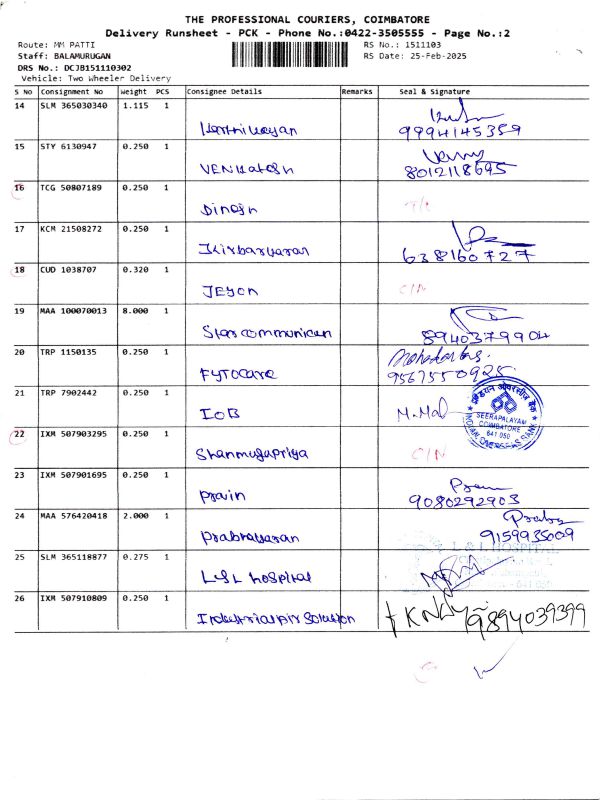 THE PROFESSIONAL COURIERS, COIMBATORE
Delivery Runsheet - PCK - Phone No.:0422-3505555 - Page No.:2
Route: MM PATTI RS No.: 1511103
Staff: BALAMURUGAN RS Date: 25-Feb-2025
DRS No.: DCJB151110302
Vehicle: Two Wheeler Delivery
S No Consignment No Weight PCS Consignee Details Remarks Seal & Signature
14 SLM 365030340 1.115 1
9994145359
15 STY 6130947 0.250 1
VENKatesh 8012118695
16 TCG 50807189 0.250 1
Dinesh
17 KCM 21508272 0.250 1
638160727
18 CUD 1038707 0.320 1
JEyon C/N
19 MAA 100070013 8.000 1
Star communican 8940379904
20 TRP 1150135 0.250 1
FYTOCare 9567550925
21 TRP 7902442 0.250 1
IOB M.Mal
इण्डियन ओवरसीज़ बैंक
SEERAPALAYAM
COIMBATORE
641 050
INDIAN OVERSEAS BANK
22 IXM 507903295 0.250 1
Shanmugapriya C/N
23 IXM 507901695 0.250 1
Prain 9080292903
24 MAA 576420418 2.000 1
Prabhakaran 9159935009
25 SLM 365118877 0.275 1
L&L hospital
L & L HOSPITAL
26 IXM 507910809 0.250 1
9894039399